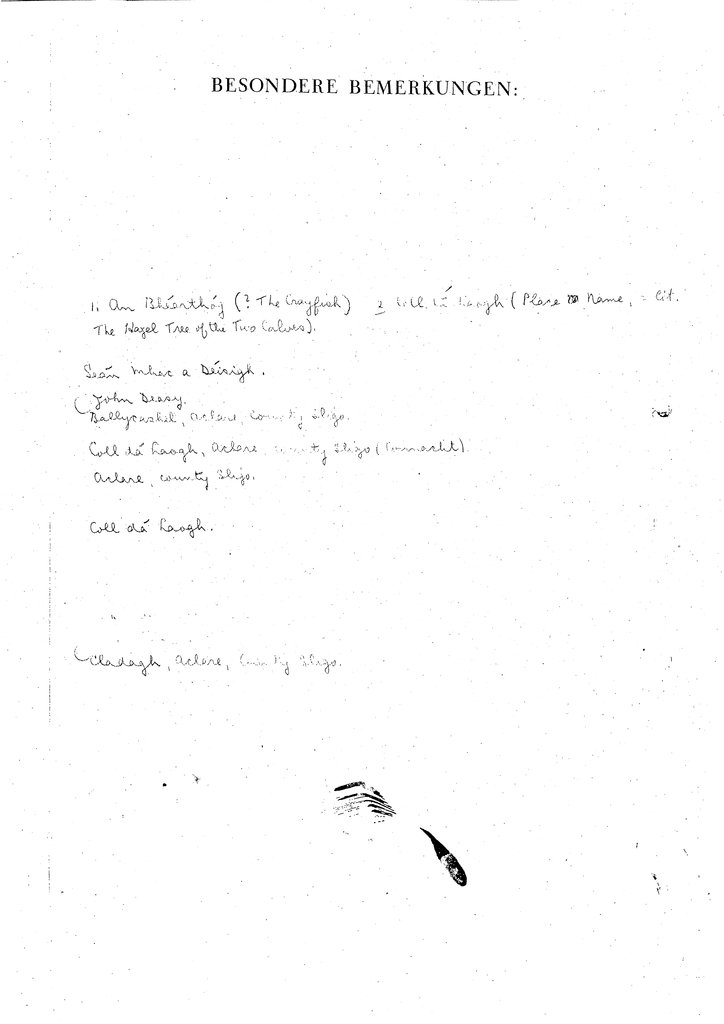 BESONDERE BEMERKUNGEN:
1. An Bhéarthóg (? The Crayfish) 2 Coll dá Laogh (Place Name, = lit.
The Hazel Tree of the Two Calves).
Seán Mhac a Déisigh.
John Deasy.
Ballycashel, Aclare, County Sligo.
Coll dá Laogh, Aclare, County Sligo (Connacht).
Aclare, County Sligo.
Coll dá Laogh.
Cladagh, Aclare, County Sligo.